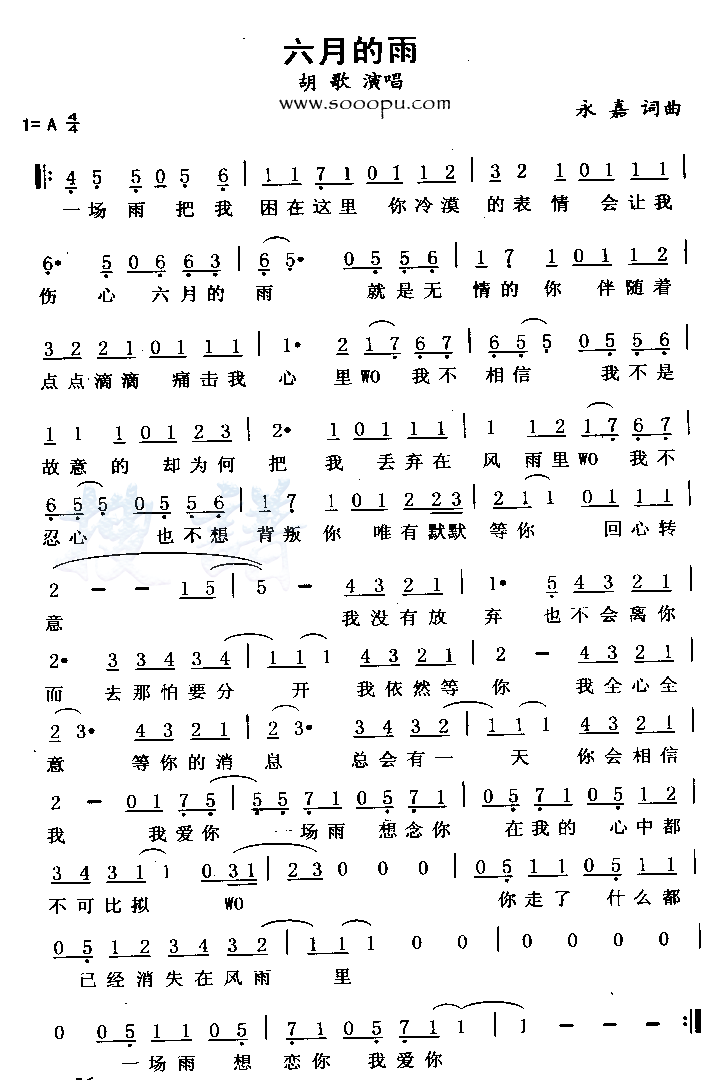 六月的雨
胡 歌 演唱
www.sooopu.com
1= A 4/4
永 嘉 词曲
4 5 5 0 5 6 | 1 1 7 1 0 1 1 2 | 3 2 1 0 1 1 1 |
一场 雨 把 我 困在这里 你冷漠 的表 情 会让我
6· 5 0 6 6 3 | 6 5· 0 5 5 6 | 1 7 1 0 1 1 2 |
伤 心 六月的 雨 就是无 情的 你 伴随着
3 2 2 1 0 1 1 1 | 1· 2 1 7 6 7 | 6 5 5 0 5 5 6 |
点点滴滴 痛击我 心 里WO 我不 相信 我不是
1 1 1 0 1 2 3 | 2· 1 0 1 1 1 | 1 1 2 1 7 6 7 |
故意 的 却为何 把 我 丢弃在 风 雨里WO 我不
6 5 5 0 5 5 6 | 1 7 1 0 1 2 2 3 | 2 1 1 0 1 1 1 |
忍心 也不想 背叛 你 唯有默默 等你 回心转
2 - - 1 5 | 5 - 4 3 2 1 | 1· 5 4 3 2 1 |
意 我没有放 弃 也不会离你
2· 3 3 4 3 4 | 1 1 1 4 3 2 1 | 2 - 4 3 2 1 |
而 去那怕要分 开 我依然等 你 我全心全
2 3· 4 3 2 1 | 2 3· 3 4 3 2 | 1 1 1 4 3 2 1 |
意 等你的消 息 总会有一 天 你会相信
2 - 0 1 7 5 | 5 5 7 1 0 5 7 1 | 0 5 7 1 0 5 1 2 |
我 我爱你 一场雨 想念你 在我的 心中都
3 4 3 1 1 0 3 1 | 1 2 3 0 0 0 | 0 5 1 1 0 5 1 1 |
不可比拟 WO 你走了 什么都
0 5 1 2 3 4 3 2 | 1 1 1 0 0 | 0 0 0 0 |
已经消失在风雨 里
0 0 0 5 1 1 0 5 | 7 1 0 5 7 1 1 | 1 - - - :||
一场雨 想 恋你 我爱你